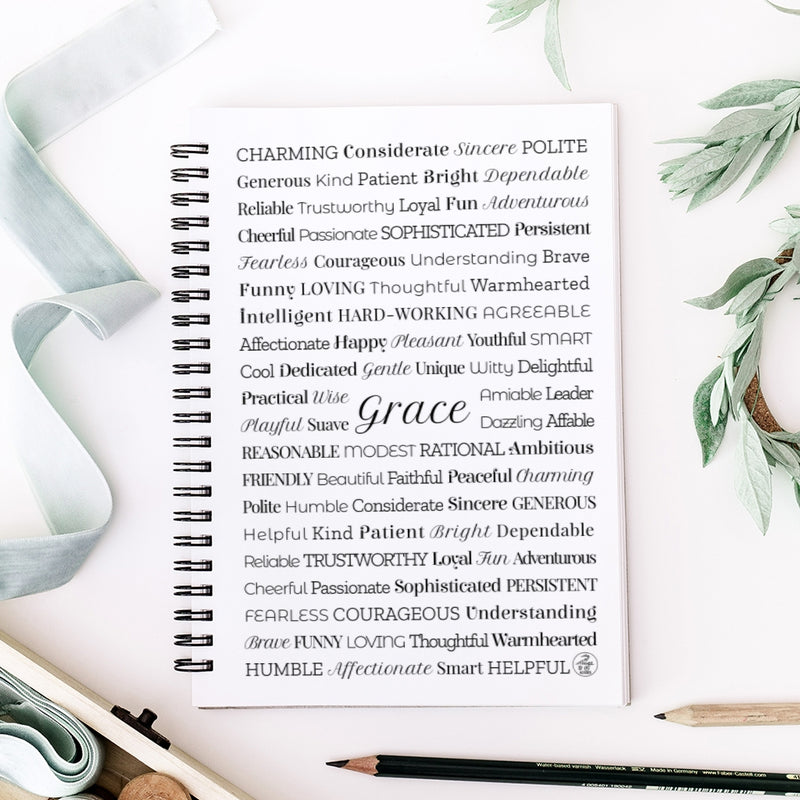 CHARMING Considerate Sincere POLITE
Generous Kind Patient Bright Dependable
Reliable Trustworthy Loyal Fun Adventurous
Cheerful Passionate SOPHISTICATED Persistent
Fearless Courageous Understanding Brave
Funny LOVING Thoughtful Warmhearted
Intelligent HARD-WORKING AGREEABLE
Affectionate Happy Pleasant Youthful SMART
Cool Dedicated Gentle Unique Witty Delightful
Practical Wise
Playful Suave
Grace
Amiable Leader
Dazzling Affable
REASONABLE MODEST RATIONAL Ambitious
FRIENDLY Beautiful Faithful Peaceful Charming
Polite Humble Considerate Sincere GENEROUS
Helpful Kind Patient Bright Dependable
Reliable TRUSTWORTHY Loyal Fun Adventurous
Cheerful Passionate Sophisticated PERSISTENT
FEARLESS COURAGEOUS Understanding
Brave FUNNY LOVING Thoughtful Warmhearted
HUMBLE Affectionate Smart HELPFUL
Water-based varnish Wasserlack Made in Germany www.Faber-Castell.com